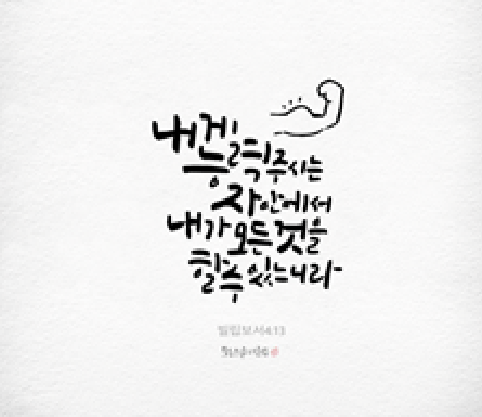 내게 능력 주시는
자 안에서
내가 모든 것을
할 수 있느니라
빌립보서4:13